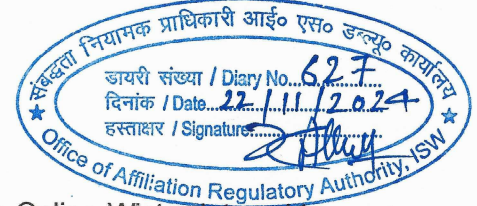 संबद्धता नियामक प्राधिकारी आई० एस० डब्ल्यू० कार्यालय
डायरी संख्या / Diary No. 627
दिनांक / Date 22/11/2024
हस्ताक्षर / Signature
Office of Affiliation Regulatory Authority, ISW